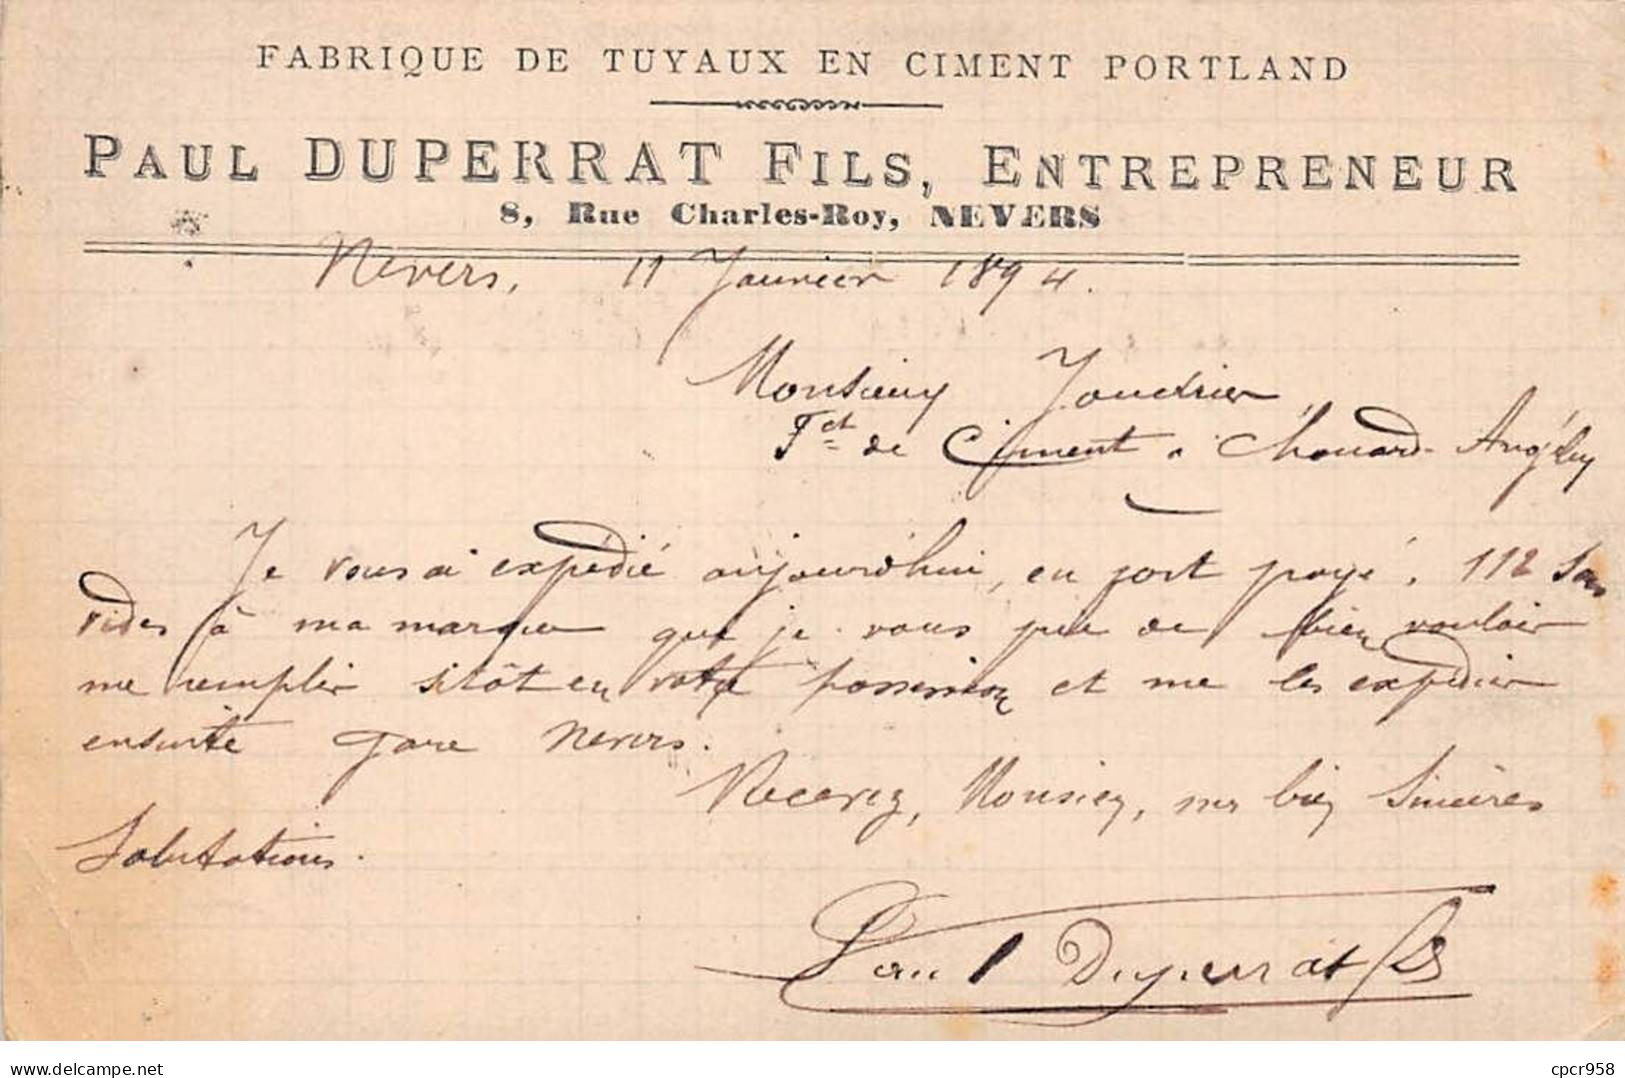 FABRIQUE DE TUYAUX EN CIMENT PORTLAND
PAUL DUPERRAT FILS, ENTREPRENEUR
8, Rue Charles-Roy, NEVERS
Nevers, 11 Janvier 1894.
Monsieur Joudrier
Fct de Ciment à Chouard-Angély
Je vous ai expédié aujourd'hui, en port payé, 112 sacs
vides à ma marque que je vous prie de bien vouloir
me remplir sitôt en votre possession et me les expédier
ensuite gare Nevers.
Recevez, Monsieur, mes bien sincères
Salutations.
Paul Duperrat fils
Salutations
cpcr958